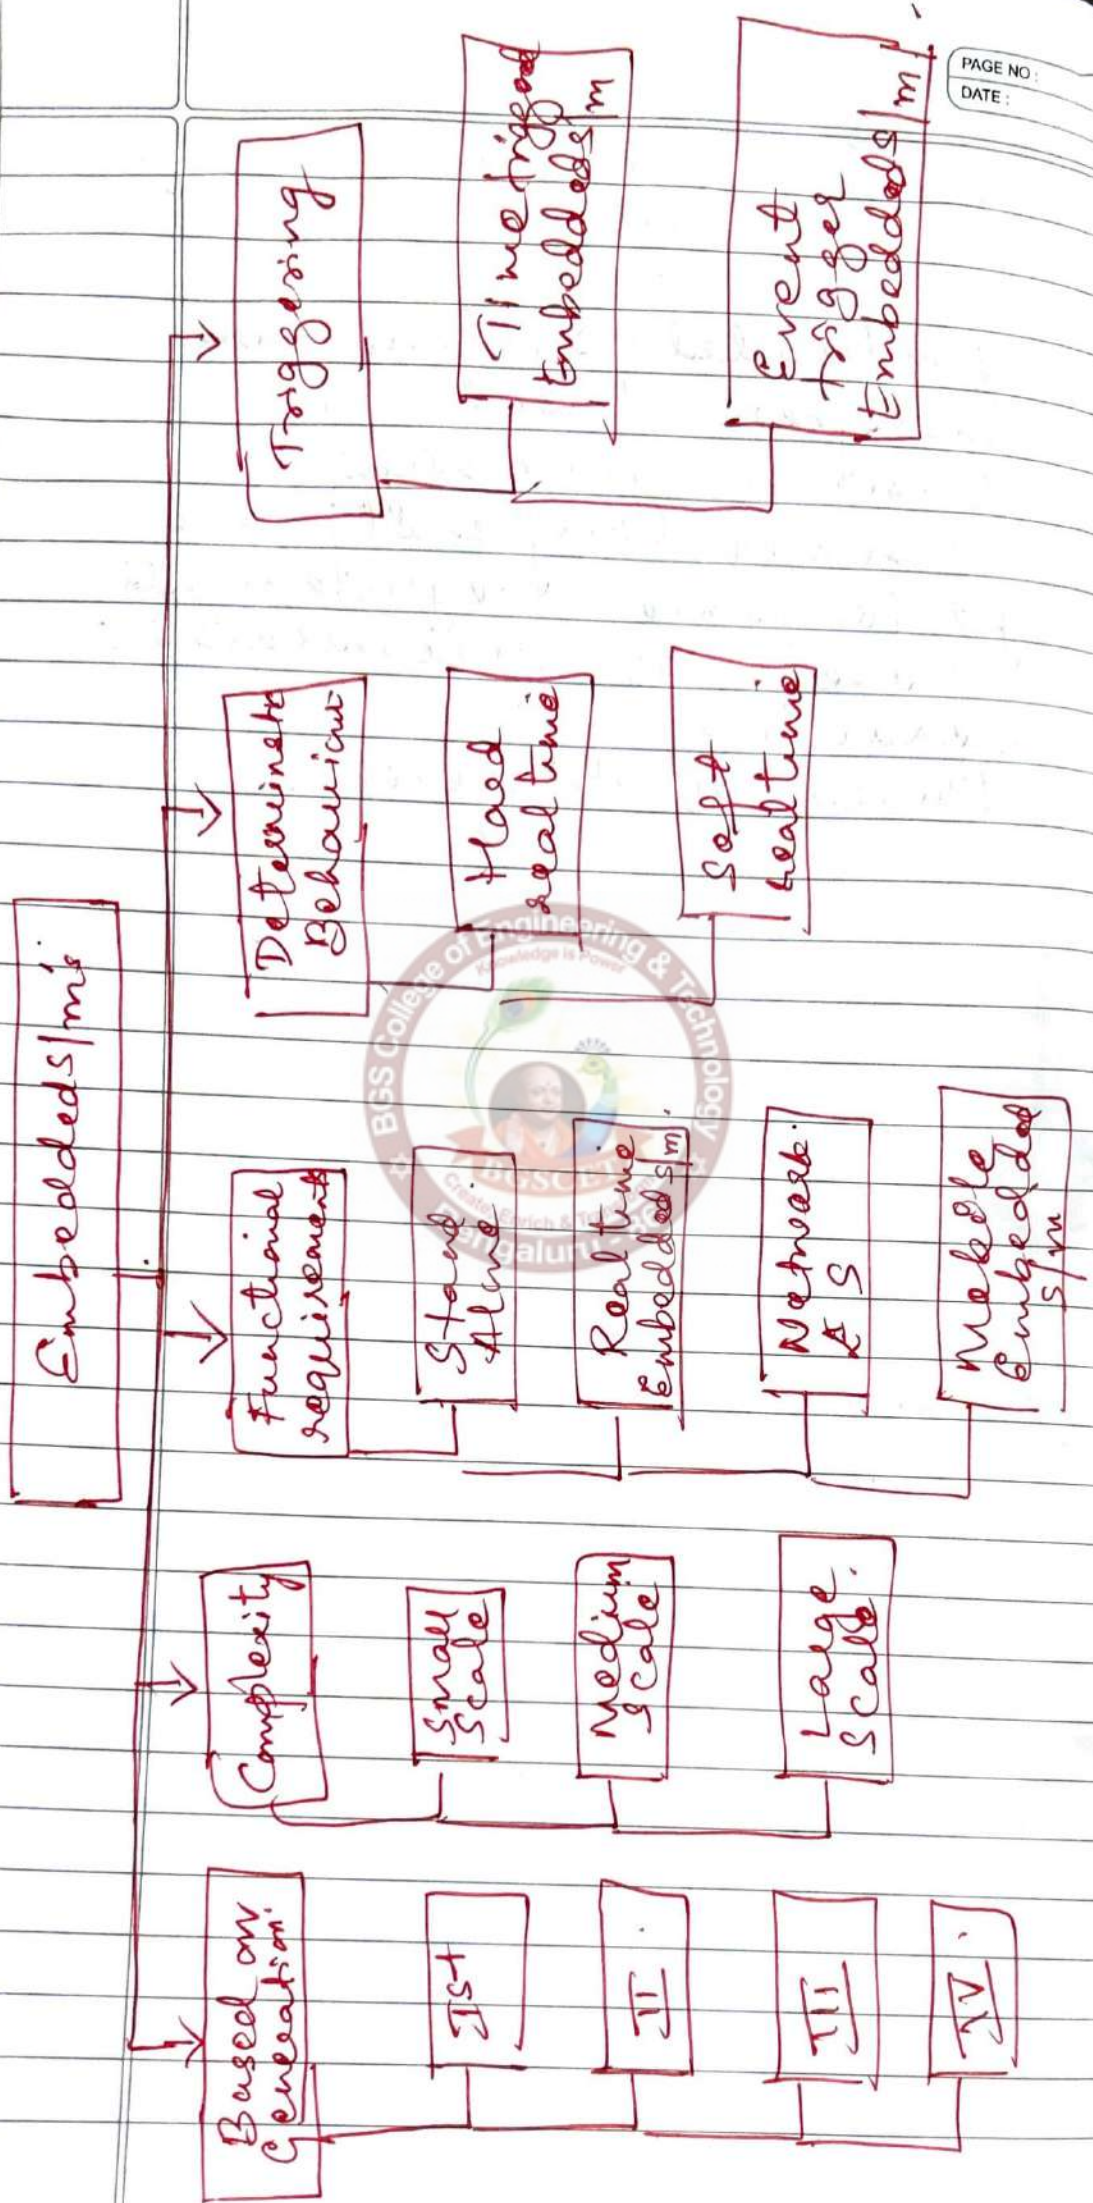 PAGE NO :
DATE :
Embedded s/m's
Based on
Generation.
Ist
II
III
IV
Complexity
Small
Scale
Medium
Scale
Large
Scale
Functional
requirements
Stand
Alone
Real time
Embedded s/m
Network
ES
Mobile
Embedded
s/m
Deterministic
Behaviour
Hard
real time
Soft
real time
Triggering
Time trigged
Embedded s/m
Event
trigger
Embedded s/m
BGS College of Engineering & Technology
Knowledge is Power
BGSCET
Bengaluru